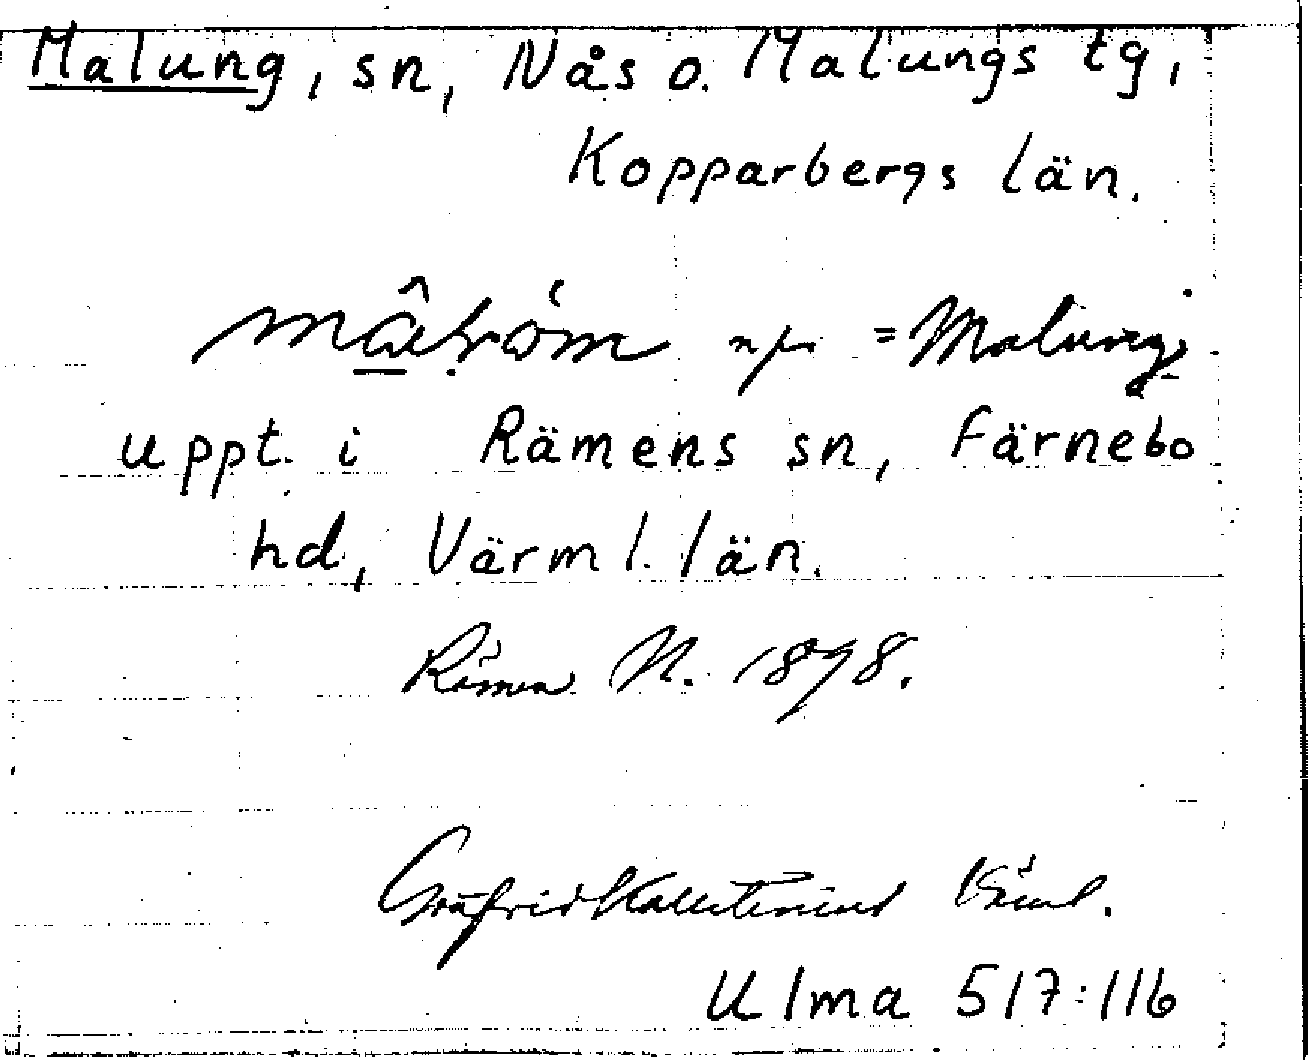 Malung, sn, Nås o. Malungs tg,
Kopparbergs län.
= Malung
uppt. i Rämens sn, Färnebo
hd, Värml. län.
Rämen N. 1898.
Gottfrid Kallstenius Värml.
Ulma 517:116